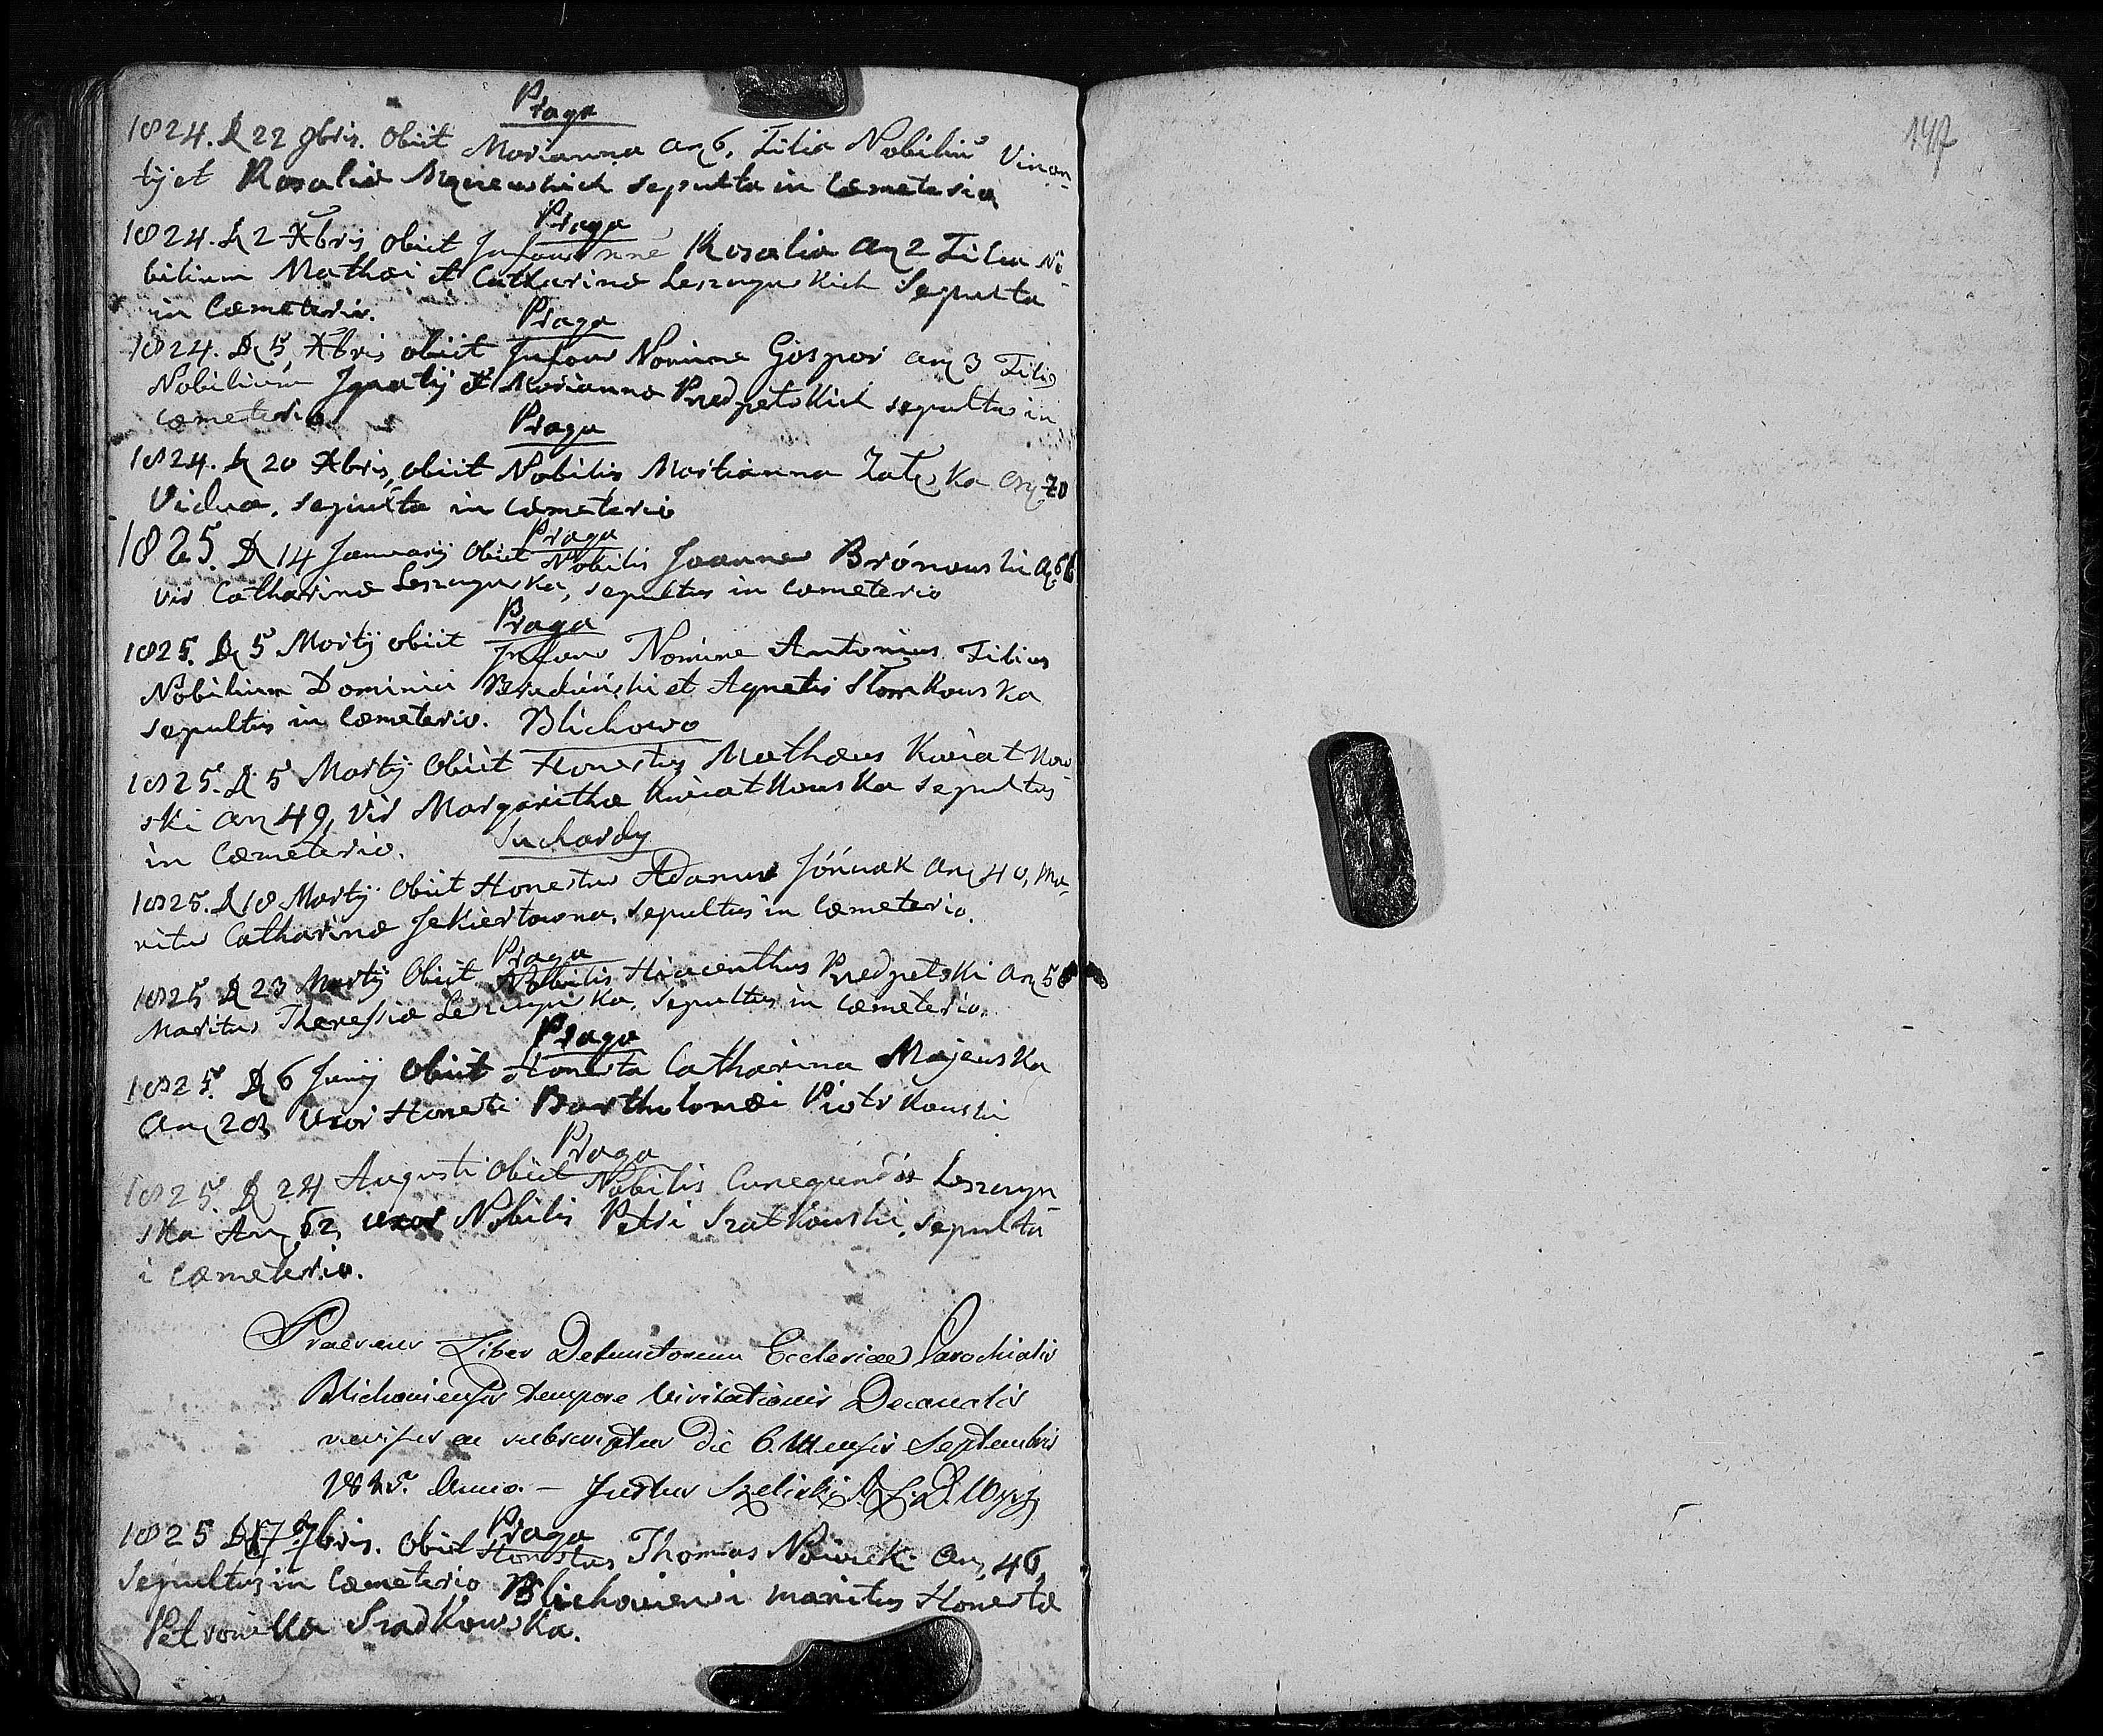 147
Praga
1824. D 22 9bris. Obiit Marianna an 6, Filia Nobiliū Vincen-
tij et Rosaliæ sepulta in Cæmeterio
Praga
1824. D 2 Xbris obiit Infans nne Rosalia an 2 Filia No-
bilium Mathæi et Catharinæ Leszczynskich Sepulta
in Cæmeterio.
Praga
1824. D 5 Xbris obiit Infans Nomine Gaspar an 3 Filius
Nobilium Ignatij et Mariannæ Pnedpełskich sepultus in
cæmeterio
Praga
1824. D 20 Xbris, obiit Nobilis Marianna Załęska an 70
Vidua, sepulta in cæmeterio
Praga
1825. D 14 Januarij Obiit Nobilis Joannes Brónowski a 66
vir Catharinæ Leszczynska, sepultus in cæmeterio
Praga
1825. D 5 Martij obiit Infans Nomine Antonius Filius
Nobilium Dominici et Agnetis Słomkowska
sepultus in Cæmeterio.
Blichowo
1825. D 5 Martij Obiit Honestus Mathæus Kwiatkow-
ski an 49, vir Margarithæ Kwiatkowska sepultus
in Cæmeterio.
Suchardy
1825. D 18 Martij Obiit Honestus Adamus Jóźwak an 40, Ma-
ritus Catharinæ Sekiertowna, sepultus in Cæmeterio.
Praga
1825 D 23 Martij Obiit Nobilis Hiacenthus Pnedpełski an 50
Maritus Theressiæ Leszczynska, sepultus in cæmeterio.
Praga
1825. D 6 Junij Obiit Honesta Catharina Majewska
an 28, Uxor Honesti Bartholomæi Piotrkowski
Praga
1825. D 24 Augusti Obiit Nobilis Cunegundis Leszczyn-
ska An 62, uxor Nobilis Petri Szatkowski, sepulta
i Cæmeterio.
Praesens Liber Defunctorum Ecclesiae Parochialis
Blichoviensis tempore Visitationis Decanalis
revisus ac subscriptus Die 6. Mensis Septembris
1825. Anno. – Justus Szelicki
Praga
1825 D 17 7bris. Obiit Honestus Thomas Nowicki an, 46,
sepultus in Cæmeterio Blichoviensi maritus Honestæ
Petronilla Szadkowska.